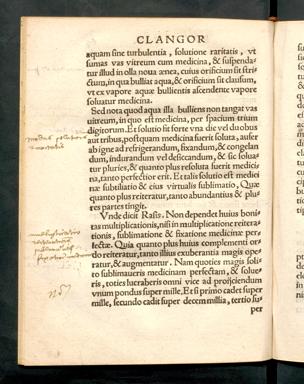 CLANGOR
aquam sine turbulentia, solutione raritatis, vt
sumas vas vitreum cum medicina, & suspenda-
tur illud in olla noua ænea, cuius orificium sit stri-
ctum, in qua bulliat aqua, & orificium sit clausum,
vt ex vapore aquæ bullientis ascendente vapore
soluatur medicina.
Sed nota quod aqua illa bulliens non tangat vas
uitreum, in quo est medicina, per spacium trium
digitorum. Et solutio sit forte vna die vel duobus
aut tribus, postquam medicina fuerit soluta, aufer
ab igne ad refrigerandum, fixandum, & congelan
dum, indurandum vel desiccandum, & sic solua
tur pluries, & quanto plus resoluta fuerit medici-
na, tanto perfectior erit. Et talis solutio est medici
næ subtiliatio & eius virtualis sublimatio, Quæ
quanto plus reiteratur, tanto abundantius & plu-
res partes tingit.
Vnde dicit Rasis. Non dependet huius bonitas
multiplicationis, nisi in multiplicatione reitera-
tionis, sublimatione & fixatione medicinæ per-
fectæ. Quia quanto plus huius complementi or-
do reiteratur, tanto illius exuberantia magis ope-
ratur, & augmentatur. Nam quoties magis soli-
to sublimaueris medicinam perfectam, & solue
ris, toties lucraberis omni vice ad proijciendum
vnum pondus super mille. Et si primo cadet super
mille, secundo cadit super decem millia, tertio su-
per